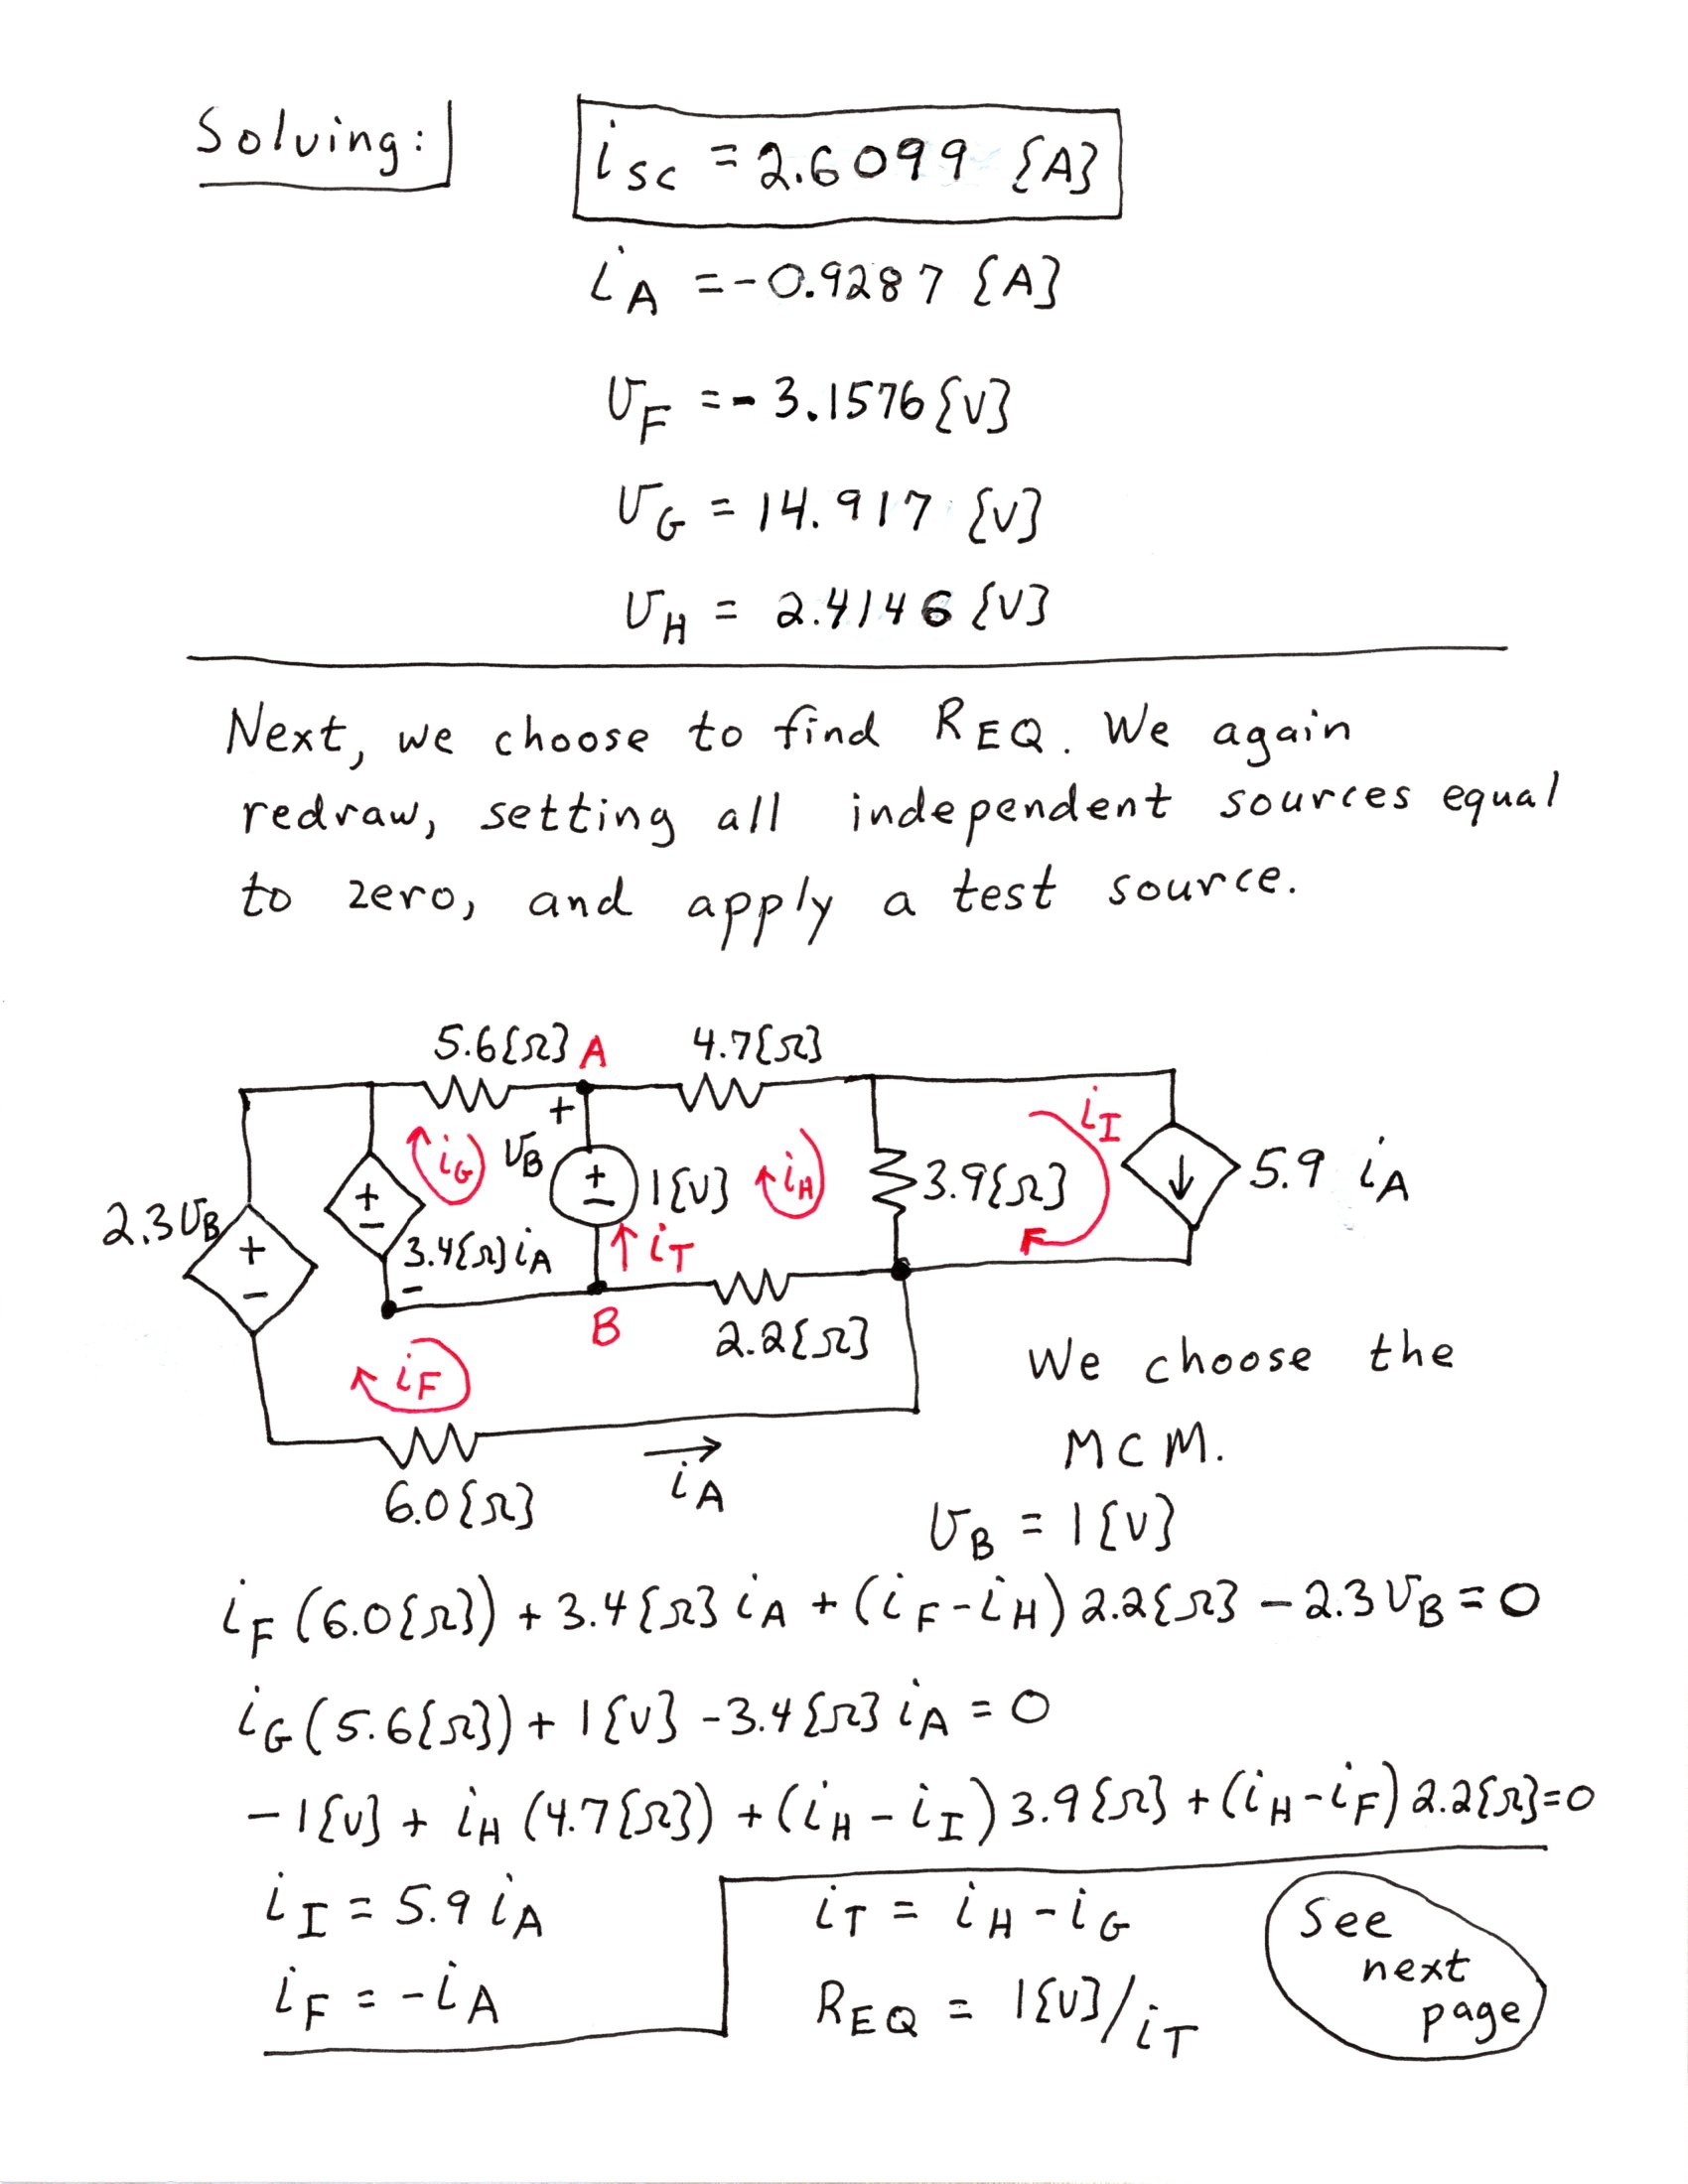 Solving:
i_SC = 2.6099 {A}
i_A = -0.9287 {A}
v_F = -3.1576 {V}
v_G = 14.917 {V}
v_H = 2.4146 {V}
Next, we choose to find R_EQ. We again
redraw, setting all independent sources equal
to zero, and apply a test source.
5.6{Ω} A 4.7{Ω}
+ i_I
i_G v_B + - 1{V} i_H 3.9{Ω} ↓ 5.9 i_A
2.3v_B + -
+ - 3.4{Ω}i_A i_T
-
B 2.2{Ω}
i_F
We choose the
MCM.
6.0{Ω} i_A
v_B = 1{V}
i_F (6.0{Ω}) + 3.4{Ω} i_A + (i_F - i_H) 2.2{Ω} - 2.3v_B = 0
i_G (5.6{Ω}) + 1{V} - 3.4{Ω} i_A = 0
- 1{V} + i_H (4.7{Ω}) + (i_H - i_I) 3.9{Ω} + (i_H - i_F) 2.2{Ω} = 0
i_I = 5.9 i_A
i_F = - i_A
i_T = i_H - i_G
R_EQ = 1{V}/i_T
See
next
page